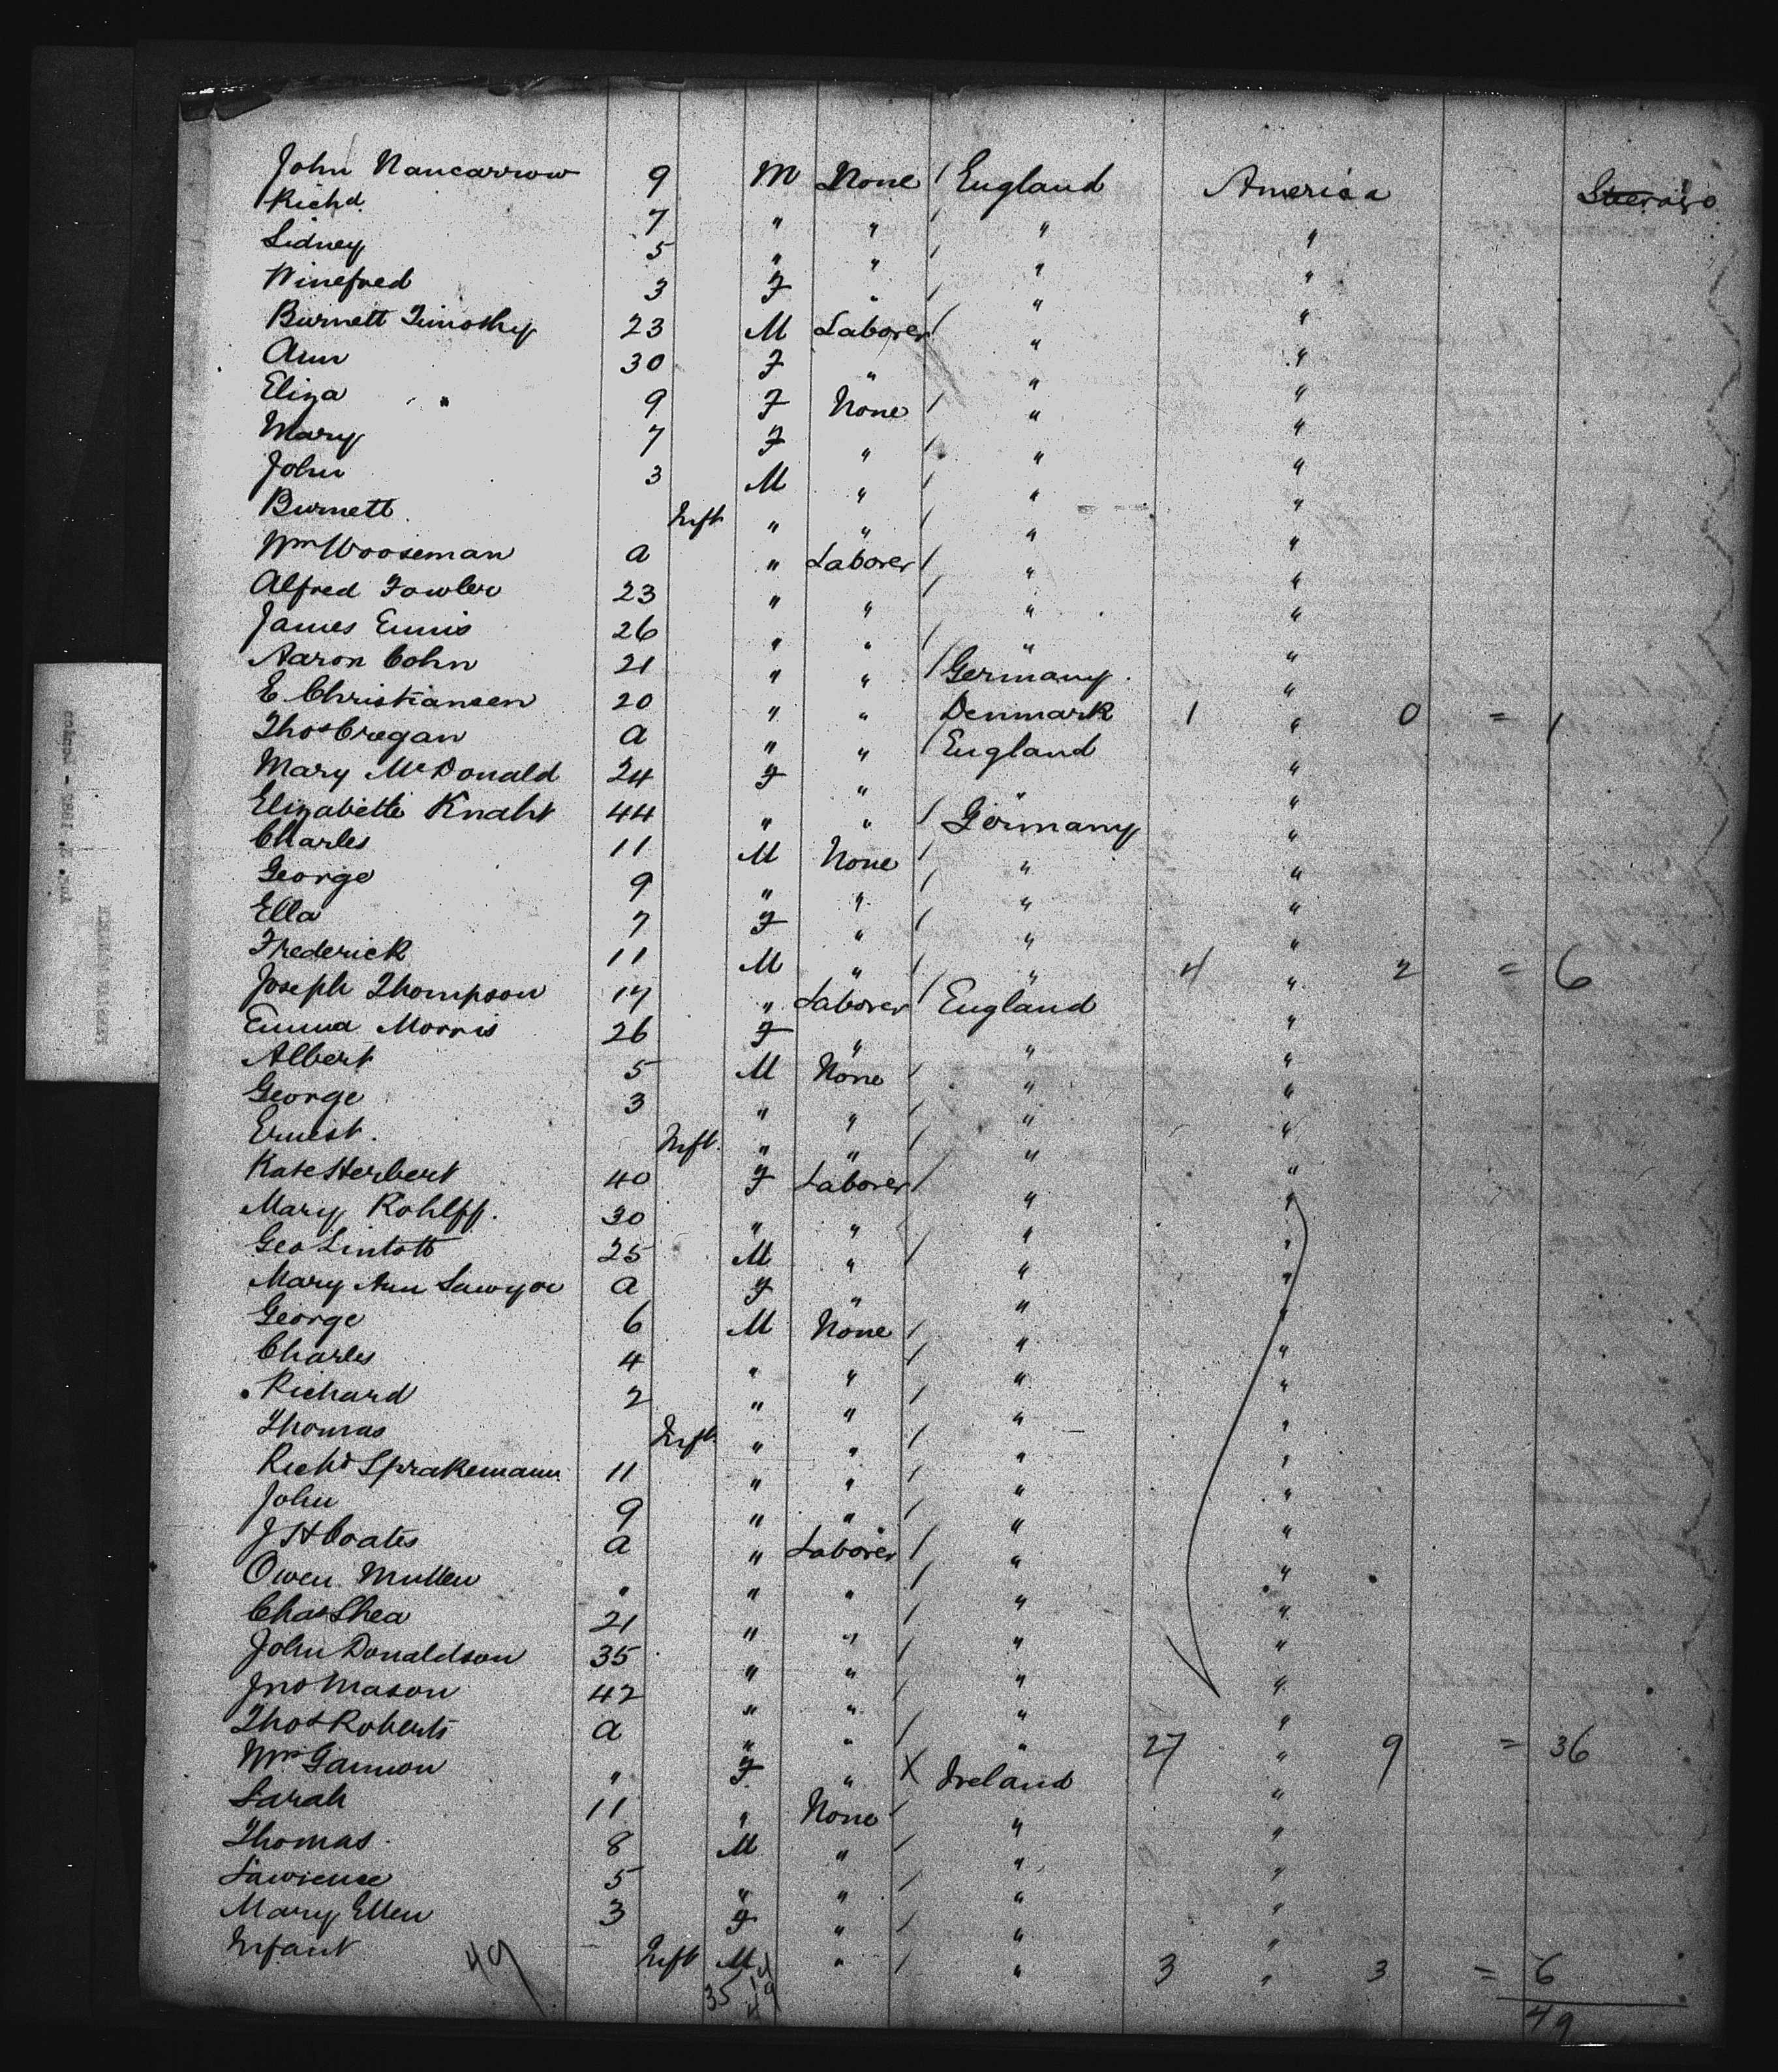 John Nancarrow 9 M None / England America
Richd 7 " " / " "
Sidney 5 " " / " "
Winefred 3 F " / " "
Burnett Timothy 23 M Laborer / " "
Ann 30 F " " "
Eliza 9 F None / " "
Mary 7 F " / " "
John 3 M " / " "
Burnett Inft " " / " "
Wm Wooseman a " Laborer / " "
Alfred Fowler 23 " " / " "
James Ennis 26 " " / " "
Aaron Cohn 21 " " / Germany "
E Christiansen 20 " " Denmark 1 " 0 = 1
Thos Cregan a " " / England "
Mary McDonald 24 F " " "
Elizabeth Knaht 44 " " / Germany "
Charles 11 M None / " "
George 9 " " / " "
Ella 7 F " / " "
Frederick 11 M " / " 4 " 2 = 6
Joseph Thompson 17 " Laborer / England "
Emma Morris 26 F " " "
Albert 5 M None / " "
George 3 " " / " "
Ernest Inft " " / " "
Kate Herbert 40 F Laborer / " "
Mary Rohlff. 30 " " " "
Geo Lintott 25 M " / " "
Mary Ann Sawyer a F " " "
George 6 M None / " "
Charles 4 " " / " "
Richard 2 " " / " "
Thomas Inft " " / " "
Richd Sprakemann 11 " " / " "
John 9 " " / " "
J H Coates a " Laborer / " "
Owen Mullen " " " / " "
Chas Shea 21 " " / " "
John Donaldson 35 " " / " "
Jno Mason 42 " " / " "
Thos Roberts a " " / " 27 " 9 = 36
Mrs Gannon " F " X Ireland "
Sarah 11 " None / " "
Thomas 8 M " / " "
Lawrence 5 " " / " "
Mary Ellen 3 F " / " "
Infant Inft M " / " 3 " 3 = 6
49 35 14 49 49